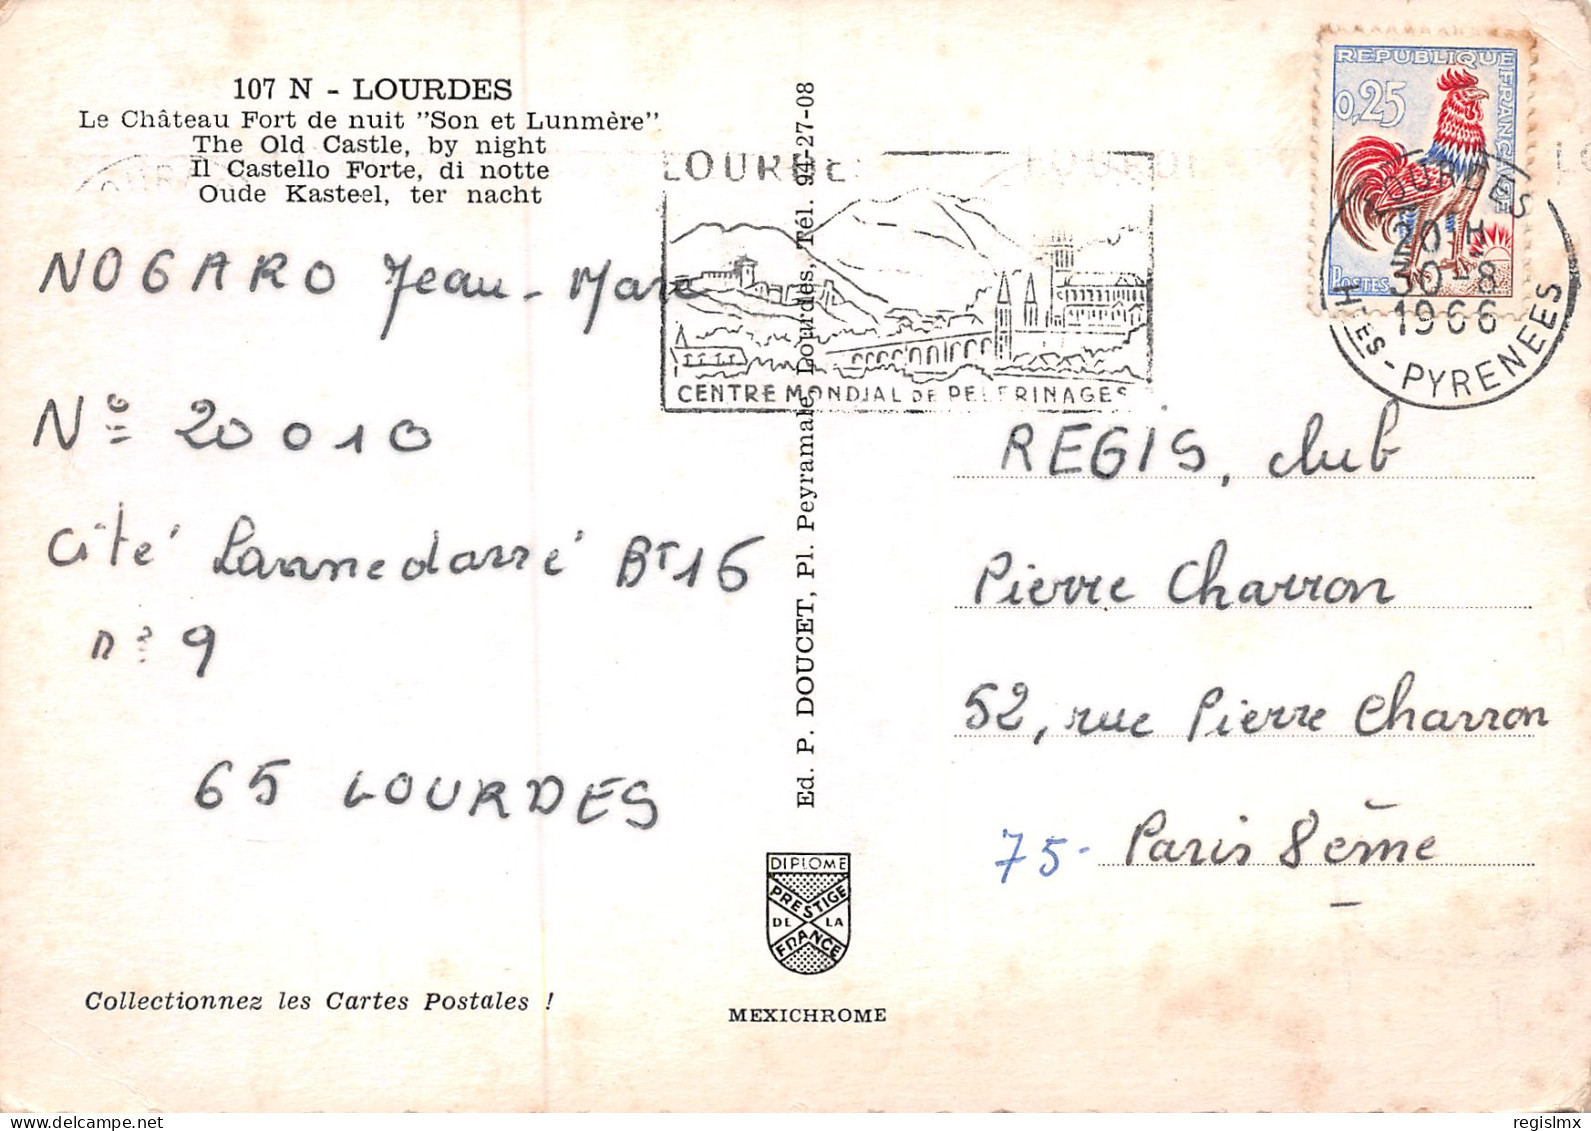 107 N - LOURDES
Le Château Fort de nuit "Son et Lunmère"
The Old Castle, by night
Il Castello Forte, di notte
Oude Kasteel, ter nacht
NOGARO Jean-Marc
N° 20010
Cité Lannedarré BT16
n° 9
65 LOURDES
Collectionnez les Cartes Postales !
Ed. P. DOUCET, Pl. Peyramale Lourdes, Tél. 94-27-08
DIPLOME
PRESTIGE
DE LA
FRANCE
MEXICHROME
LOURDES
CENTRE MONDIAL DE PELERINAGES
REPUBLIQUE FRANÇAISE
0,25
POSTES
LOURDES
20 H
30-8
1966
HTES-PYRENEES
REGIS, club
Pierre Charron
52, rue Pierre Charron
75- Paris 8ème
regislmx